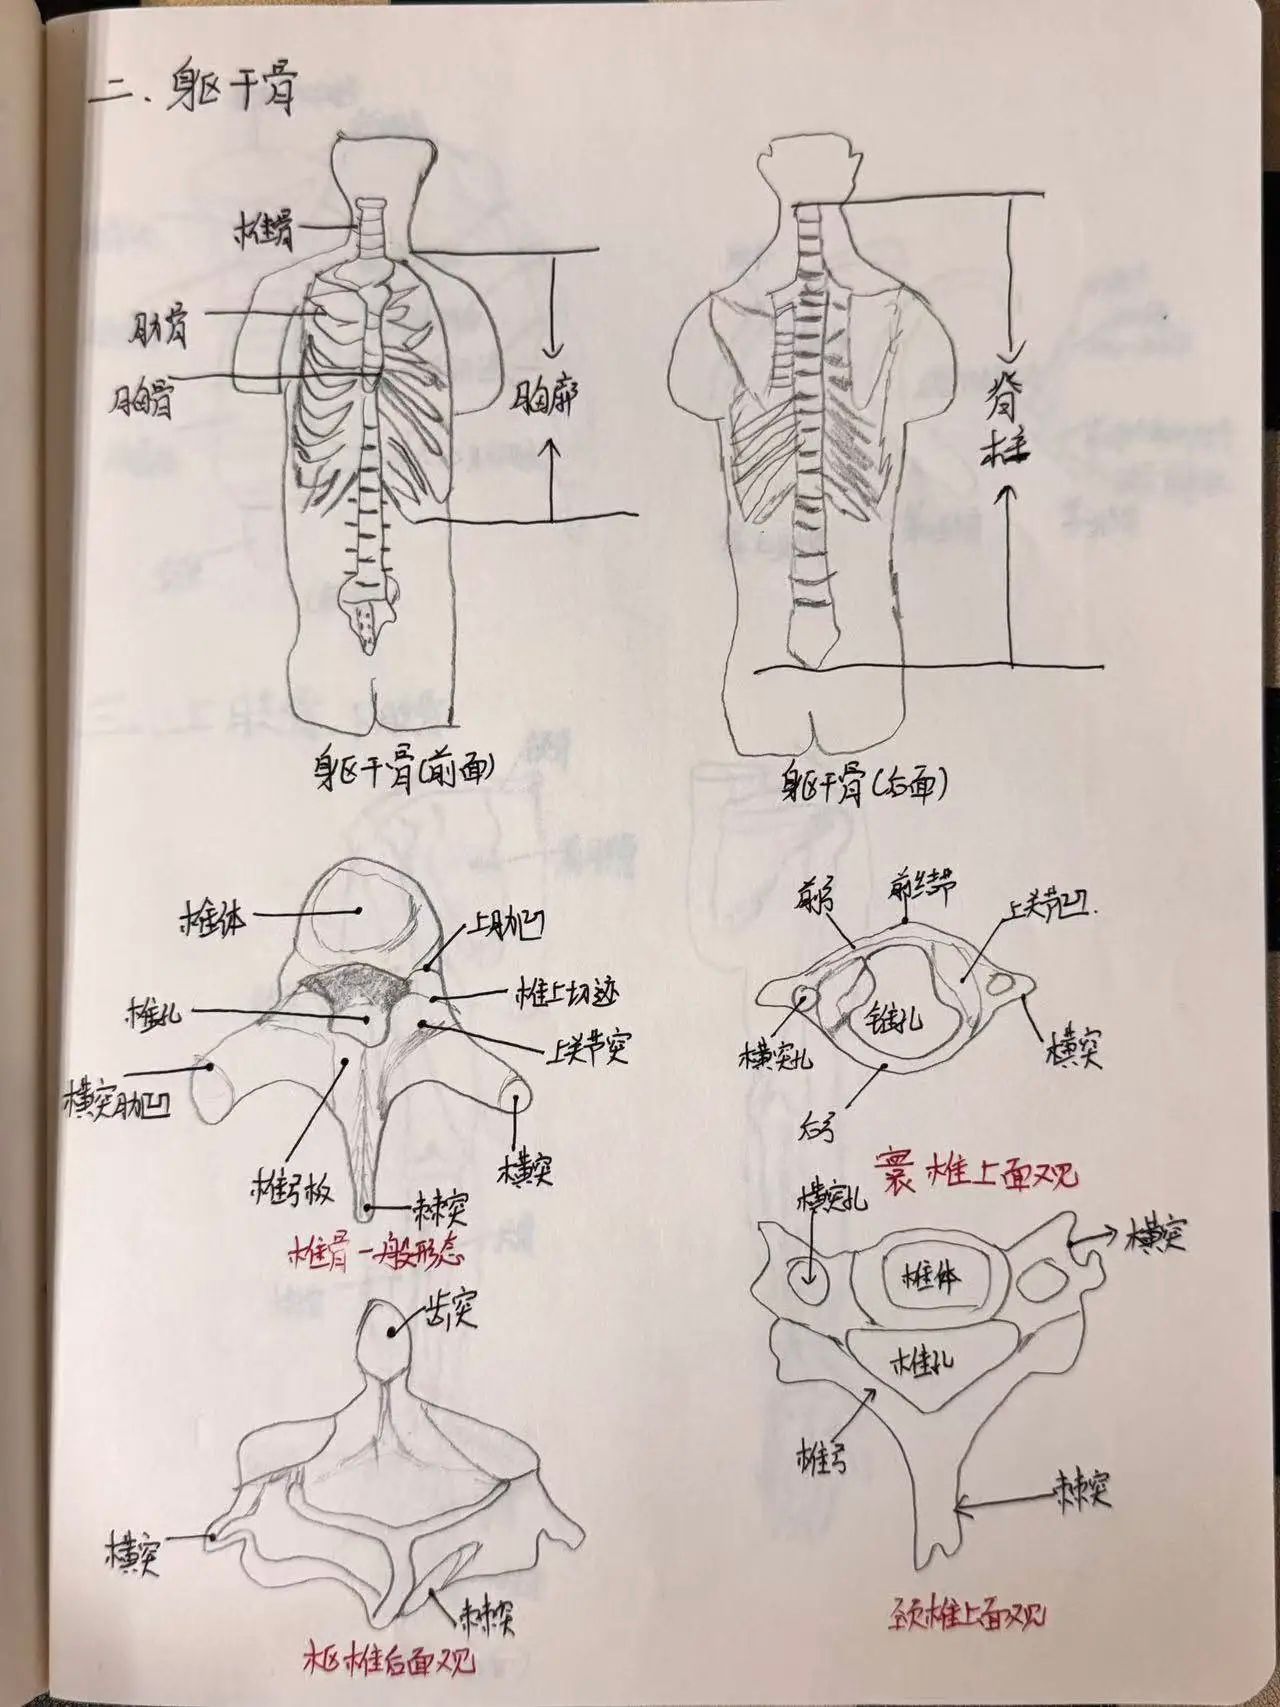 二、躯干骨
椎骨
肋骨
胸骨
胸廓
躯干骨(前面)
脊柱
躯干骨(后面)
椎体
上肋凹
椎上切迹
椎孔
上关节突
横突肋凹
椎弓板
横突
棘突
椎骨一般形态
前弓
前结节
上关节凹.
锥孔
横突孔
横突
后弓
寰椎上面观
齿突
横突
棘突
枢椎后面观
横突孔
横突
椎体
椎孔
椎弓
棘突
颈椎上面观